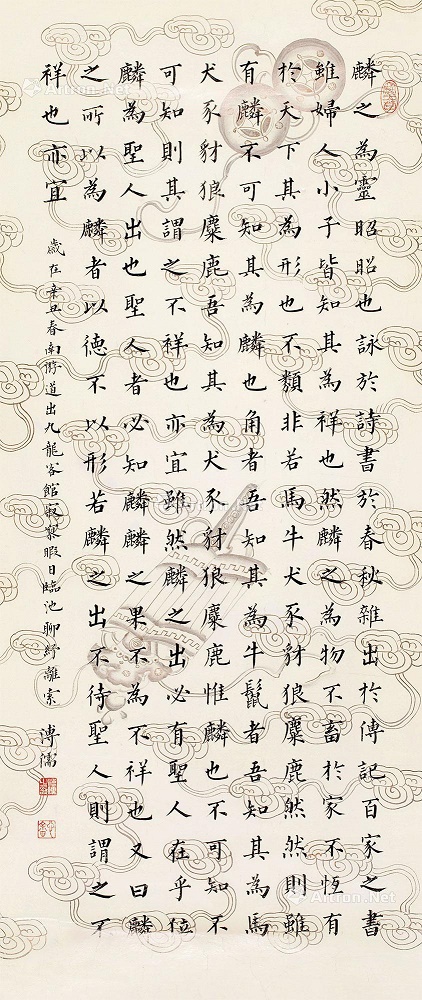 麟之為靈昭昭也詠於詩書於春秋雜出於傳記百家之書
雖婦人小子皆知其為祥也然麟之為物不畜於家不恆有
於天下其為形也不類非若馬牛犬豕豺狼麋鹿然然則雖
有麟不可知其為麟也角者吾知其為牛鬣者吾知其為馬
犬豕豺狼麋鹿吾知其為犬豕豺狼麋鹿惟麟也不可知不
可知則其謂之不祥也亦宜雖然麟之出必有聖人在乎位
麟為聖人出也聖人者必知麟麟之果不為不祥也又曰麟
之所以為麟者以德不以形若麟之出不待聖人則謂之不
祥也亦宜
歲在辛丑春南游道出九龍客館寂寥暇日臨池聊紓離索
溥儒
Artron.Net